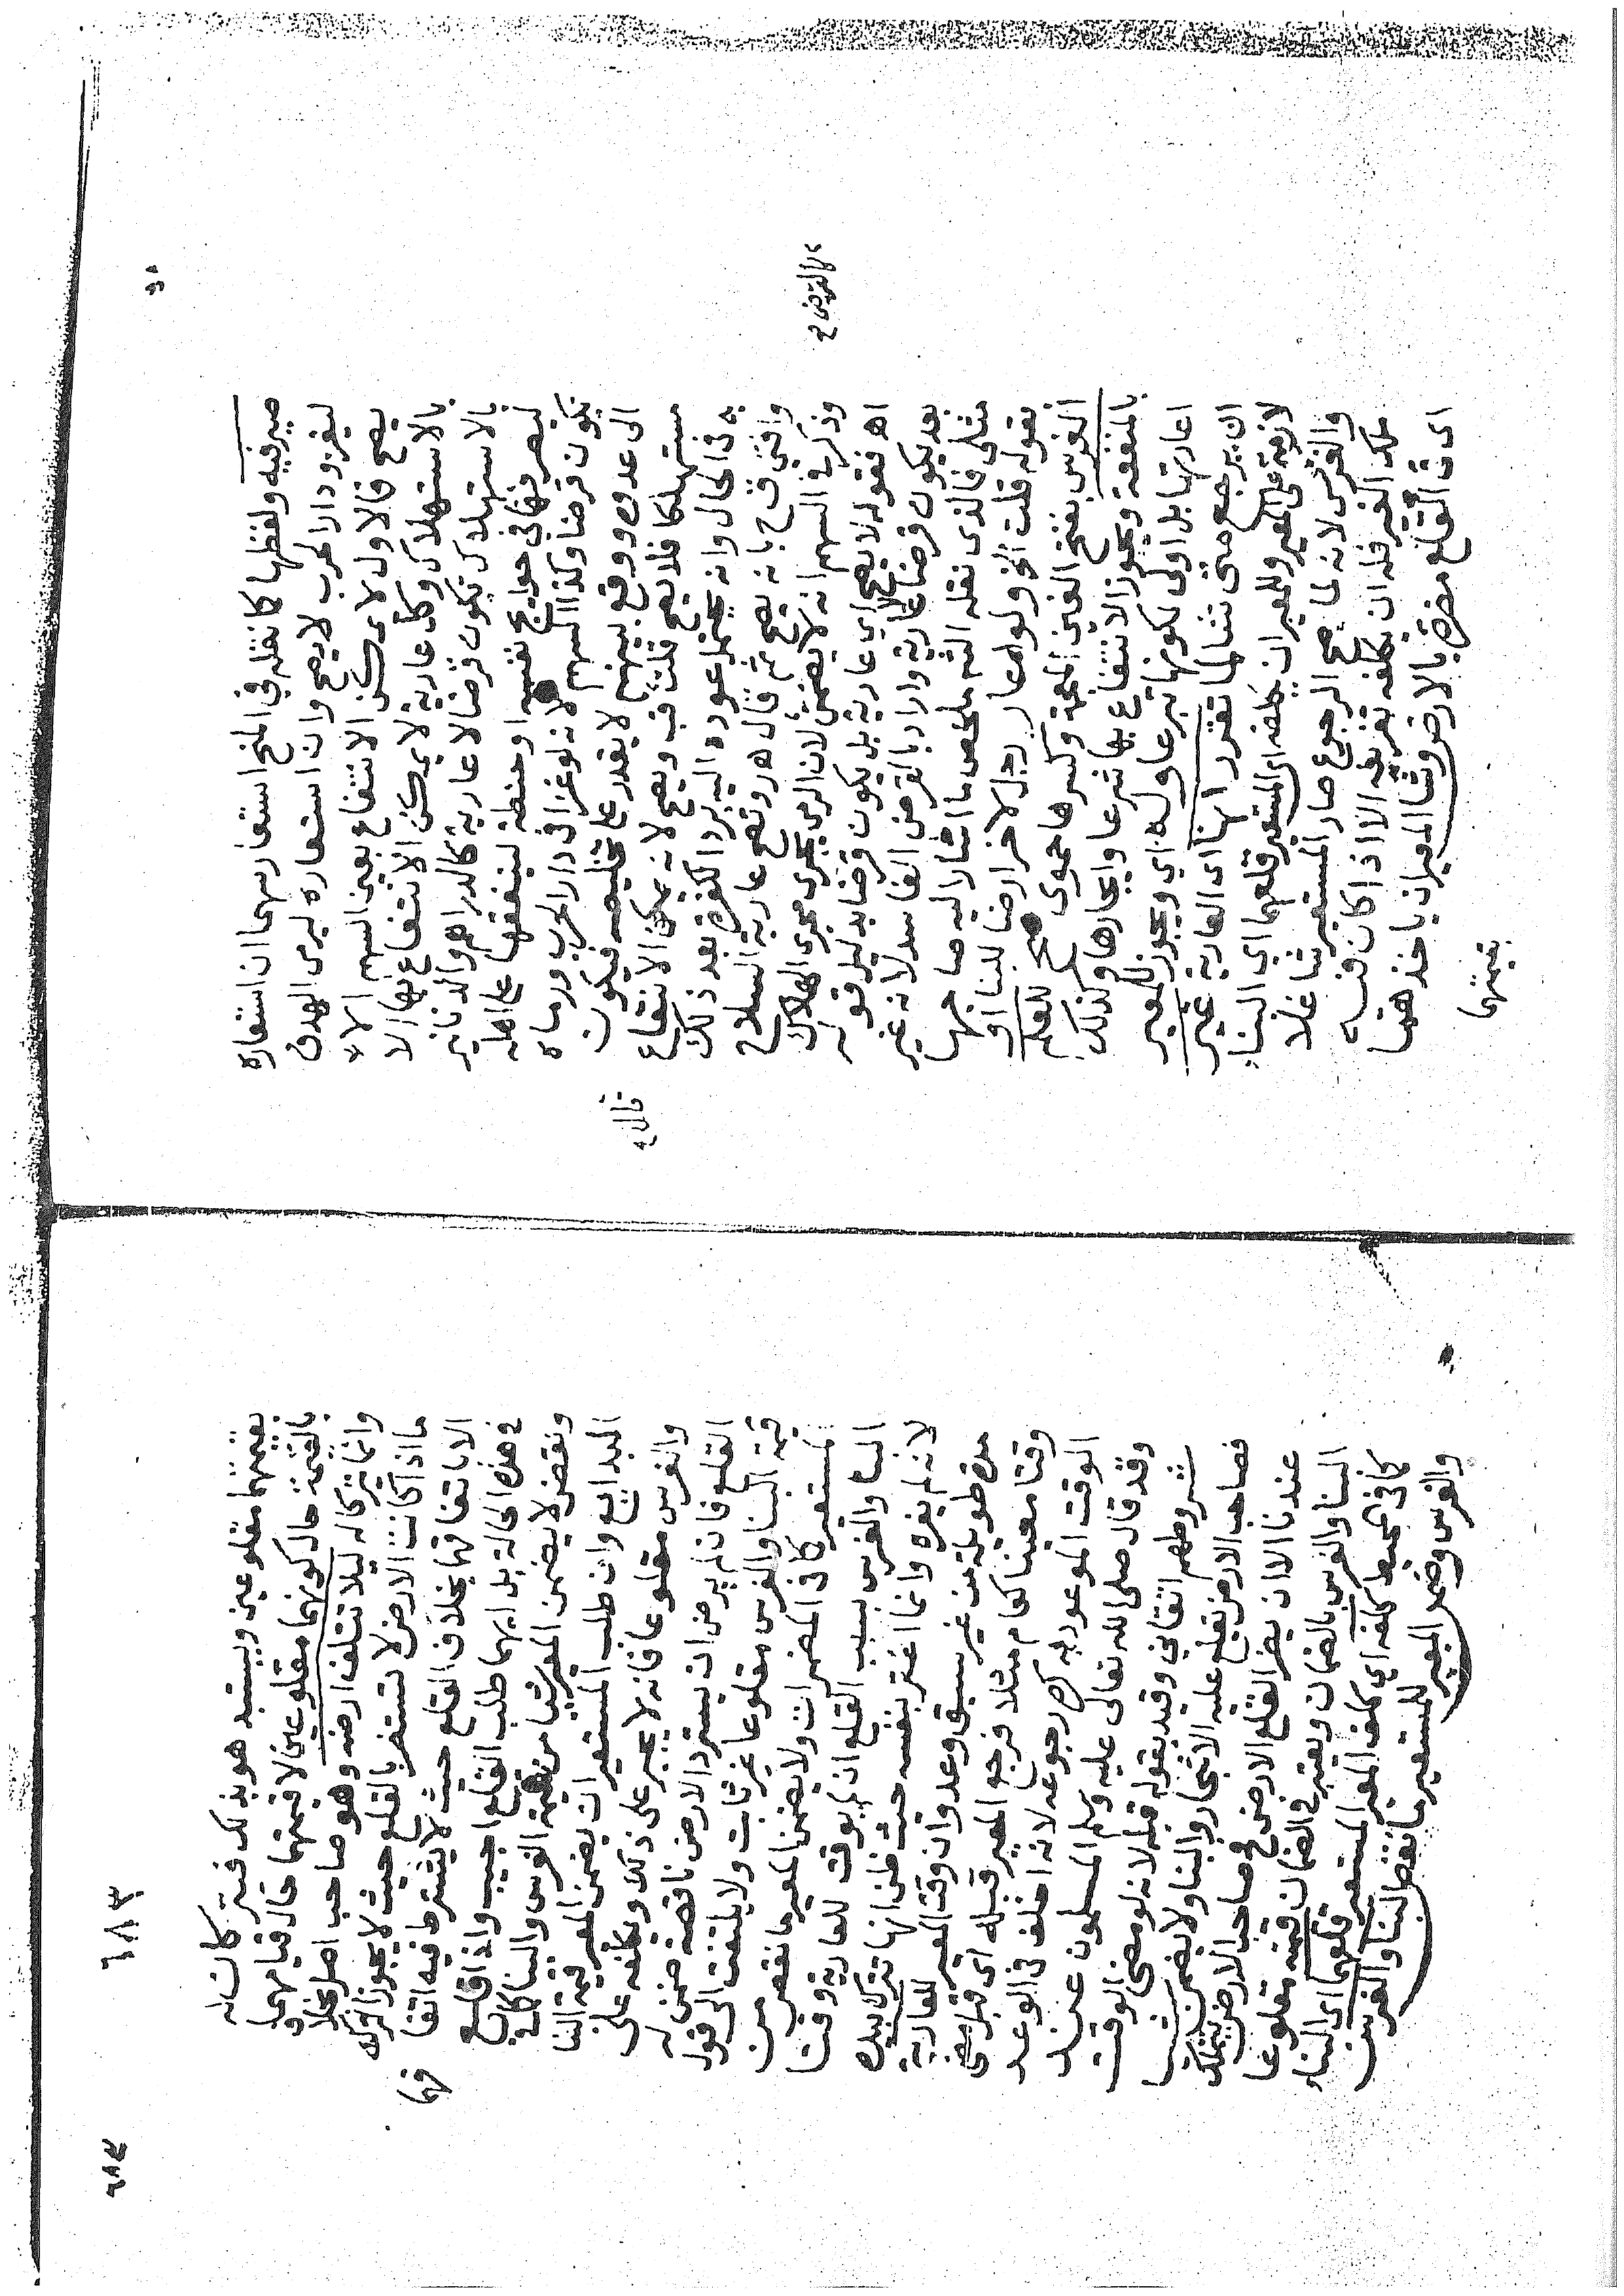 صيرفيه ولفظها كما نقله في المنح استعار سهما ان استعاره
ليغزو دار الحرب لا يصح وان استعاره ليرمى الهدف
يصح فالاول لا يمكن الانتفاع بعين السهم الا
بالاستهلاك وكل عارية لا يمكن الانتفاع بها الا
بالاستهلاك تكون قرضا لا عارية كالدراهم والدنانير
ليصرفها في حوايج نفسه او حنطة لينفقها على اهله
يكون قرضا وكذا السهم لانه لو غزا في دار الحرب ورماه
الى عدو ووقع بينهم لا يقدر على تخليصه فيكون
مستهلكا فلا يصح قلت ويصح لانه يمكن الانتفاع
به في الحال وانه يحتمل عوده اليه برد الكفرة بعد ذلك
وافتى بانه يصح ثم قال وتصح عارية السلاح
وذكر في السهم انه لا يضمن لان الرمي يجري مجرى الهلاك
اه فقوله لا يصح اي عارية بل يكون قرضا بدليل قوله
بعد يكون قرضا عارية واراد بالقرض الفاسد لانه غير
مثلى فالذى نقله الشه ملخص ما اشار اليه صاحبها
بقوله قلت الخ ولو اعار رجل لاخر ارضا للبنا او
الغرس بفتح الغين المعجمة وكسرها حموى صح للعلم
بالمنفعة ويجوز الانتفاع بها شرعا وايجارها وكذلك
اعارتها بل اولى لكونها تبرعا وله اي ويجوز للمعير
ان يرجع متى شا لما تقرر انها اى العارية غير
لازمة على المعير وللمعير ان يكلفه اى المستعير قلعهما اي البناء
والغرس لانه لما صح الرجوع صار المستعير شاغلا
ملك الغير فله ان يكلفه تفريغه الا اذا كان فيه
اى في القلع مضرة بالارض وشا المعير ان ياخذهما
بقيمتهما
قال به
كالقرض ح
٦٨٣
بقيمتهما مقلوعين ويستبد هو بذلك فتتركان له
بالقيمة حال كونهما مقلوعين لا قيمتهما حال قيامهما
وانما يتركا له ليلا تتلف ارضه وهو صاحب اصل بخلاف
ما اذا كانت الارض لا تستضر بالقلع حيث لا يجوز الترك
الا باتفاقهما بخلاف القلع حيث لا يشترط فيه اتفا
فهما
في هذه الحالة بل ايهما طلب القلع اجيب واذا قلع
ونقض لا يضمن المعير شيا من قيمة الغرس والبنا كما في
البدايع وان طلب المستعير ان يضمن المعير قيمة البنا
والغرس مقلوعا فانه لا يجبر على ذلك ويكلفه على
القلع فان لم يرض ان يسترد الارض ناقصة ضمن له
قيمة البنا والغرس مقلوعا غير ثابت ولا يلتفت الى قول
المستعير كما في المضمرات ولا يضمن المعير ما نقص من
البنا والغرس بسبب القلع ان لم يوقت للعارية وقتا
لانه لم يغره وانما اغتر بنفسه حيث ظن انها تترك بيده
مدة طويلة من غير سبق وعد وان وقت المعير للعارية
وقتا معينا كعام مثلا فرجع المعير قبله اى قبل مضى
الوقت الموعود به كره رجوعه لانه اخلف في الوعد
وقد قال صلى الله تعالى عليه وسلم المسلمون عند
شروطهم اتقاني وقيد بقوله قبله لانه لو مضى الوقت
فصاحب الارض يقلع عليه الاشجار والبنا ولا يضمن شيا
عندنا الا ان يضر القلع الارض فصاحب الارض يتملك
البنا والغرس بالضمان ويعتبر في الضمان قيمته مقلوعا
كما في المحيط كلفه اي كلف المعير المستعير قلعهما اى البناء
والغرس وضمن المعير للمستعير ما نقص البنا والغرس
٦٨٣